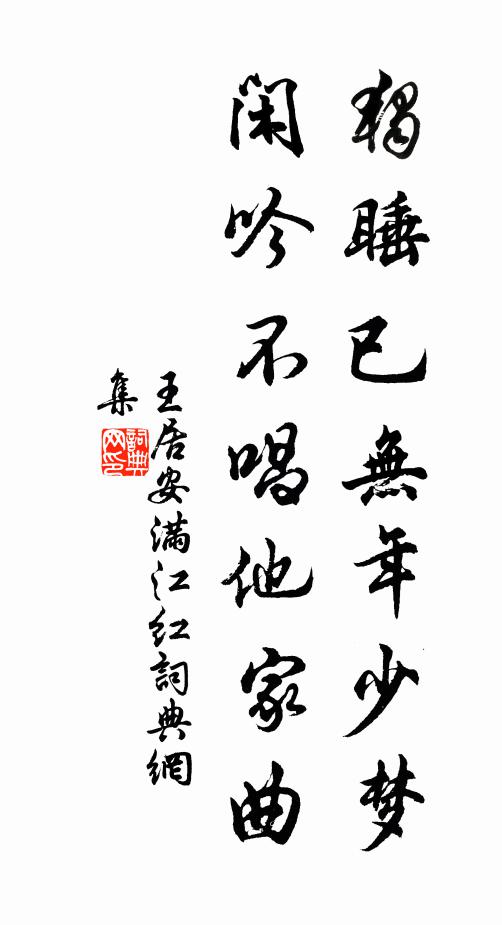 獨睡已無年少梦
闲吟不唱他家曲
王居安滿江红詞典網
集
詞典
网印